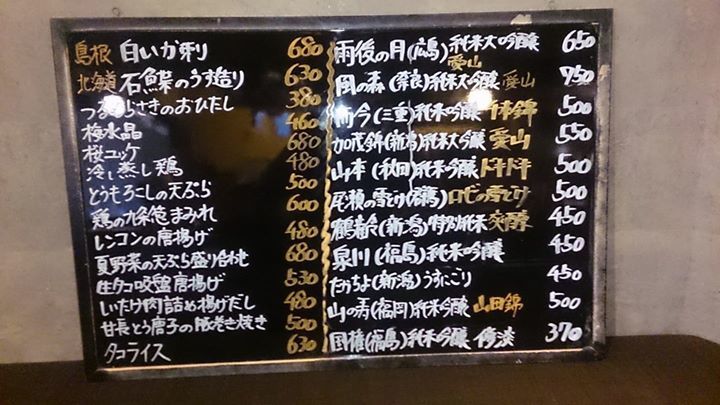 島根 白いか刺 680
北海道 石鯛のうす造り 630
つるむらさきのおひたし 380
梅水晶 460
桜ユッケ 680
冷し蒸し鶏 480
とうもろこしの天ぷら 500
鶏の九条葱まみれ 600
レンコンの唐揚げ 480
夏野菜の天ぷら盛り合わせ 680
生タコ吸盤唐揚げ 530
しいたけ肉詰め揚げだし 480
甘長とう唐子の豚巻き焼き 500
タコライス 630
雨後の月(広島)純米大吟醸 愛山 650
風の森(奈良)純米大吟醸 愛山 750
而今(三重)純米吟醸 千本錦 500
加茂錦(新潟)純米大吟醸 愛山 550
山本(秋田)純米吟醸 ドキドキ 500
尾瀬の雪どけ(群馬)ロゼの雪どけ 500
鶴齢(新潟)特別純米 爽醇 450
泉川(福島)純米吟醸 450
たかちよ(新潟)うすにごり 450
山の寿(福岡)純米吟醸 山田錦 500
国権(福島)純米吟醸 370